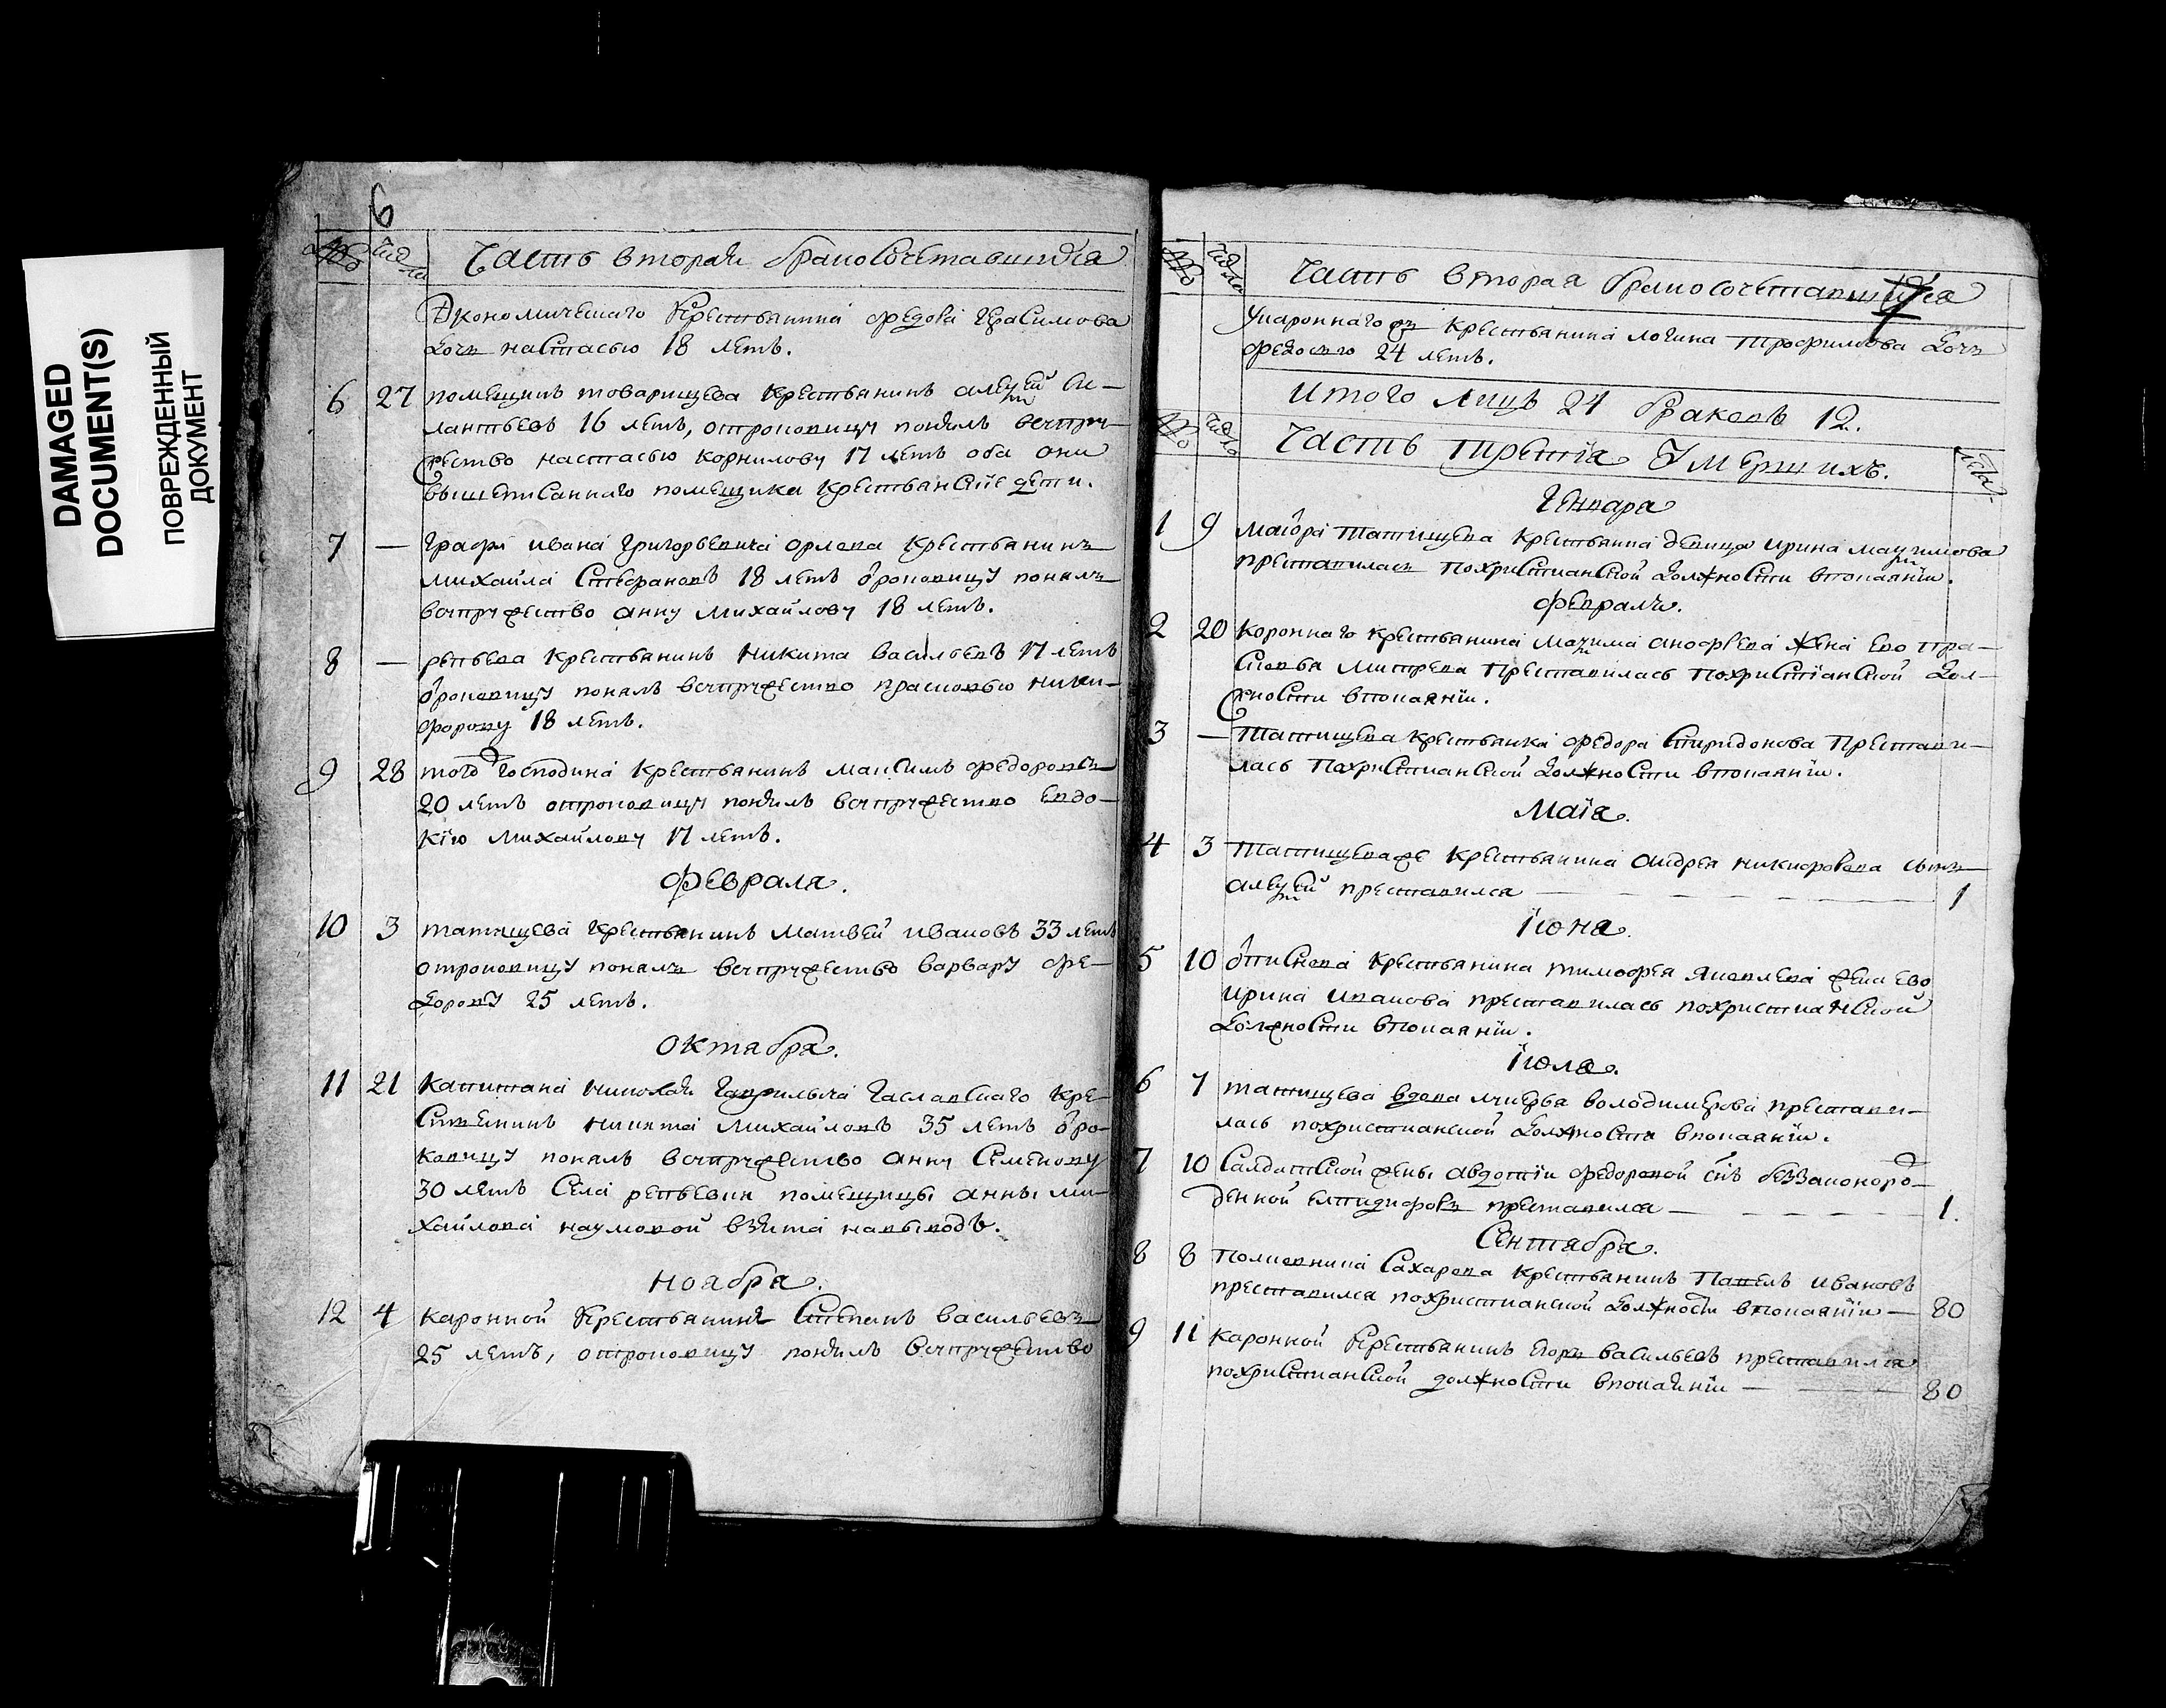 DAMAGED
DOCUMENT(S)
ПОВРЕЖДЕННЫЙ
ДОКУМЕНТ
6
числа Часть вторая бракосочетавшихся
Экономическаго крестьянина федота герасимова
дочь настасью 18 летъ.
6 27 помещикъ товарищева крестьянинъ алеѯей си-
лантьевъ 16 летъ, отроковицу понялъ всупру-
жество настасью корнилову 17 летъ оба они
вышеписаннаго помещика крестьянские дети.
7 — графа ивана григорьевича орлова крестьянинъ
михайла Стефановъ 18 летъ отроковицу понялъ
всупружество анну михайлову 18 летъ.
8 — репьева крестьянинъ никита васильевъ 17 летъ
отроковицу понялъ всупружество прасковью ники-
форову 18 летъ.
9 28 того господина крестьянинъ максимъ федоровъ
20 летъ отроковицу понялъ всупружество евдо-
кїю михайлову 17 летъ.
февраля.
10 3 татищева крестьянинъ матвей ивановъ 33 летъ
отроковицу понялъ всупружество варвару фе-
дорову 25 летъ.
октября.
11 21 капитана николая гаврильича чаславскаго кре-
стьенинъ никита михайловъ 35 летъ отро-
ковицу понялъ всупружество анну семенову
30 летъ села репьевки помещицы анны ми-
хайловы наумовой взята навыводъ.
ноября.
12 4 каронной крестьянинъ Степанъ васильевъ
25 летъ, отроковицу понялъ всупружество
7
числа Часть вторая бракосочетавшихся
укароннаго жъ крестьянина логина трофимова дочь
федосью 24 летъ.
итого лицъ 24 браковъ 12.
числа Часть третїя умершихъ. лета
Генваря
1 9 маиора татищева крестьянина девица ирина маѯимова
преставилась похристианской должности впокаянїи.
февраля.
2 20 коронного крестьянина маѯима анофрева жена ево пра-
сковья митрева преставилась похристїанской дол-
жности впокаянїи.
3 — татищева крестьянка федора спиридонова престави-
лась похристианской должности впокаянїи.
маїя.
4 3 татищева же крестьянина андрея никифорова сынъ
алеѯей преставился 1
їюня.
5 10 крестьянина тимофея яковлева жена ево
ирина иванова преставилась похристианской
должности впокаянїи.
їюля.
6 7 татищева вдова лукерья володимерова престави-
лась похристианской должности впокаянїи.
7 10 салдатской жены авдотїи федоровой снъ беззаконоро-
жденной елпидифоръ преставился 1.
Сентября.
8 8 полковника Сахарова крестьянинъ павелъ ивановъ
преставился похристианской должности впокаянїи — 80
9 11 каронной крестьянинъ егоръ васильевъ преставился
похристианской должности впокаянїи — 80